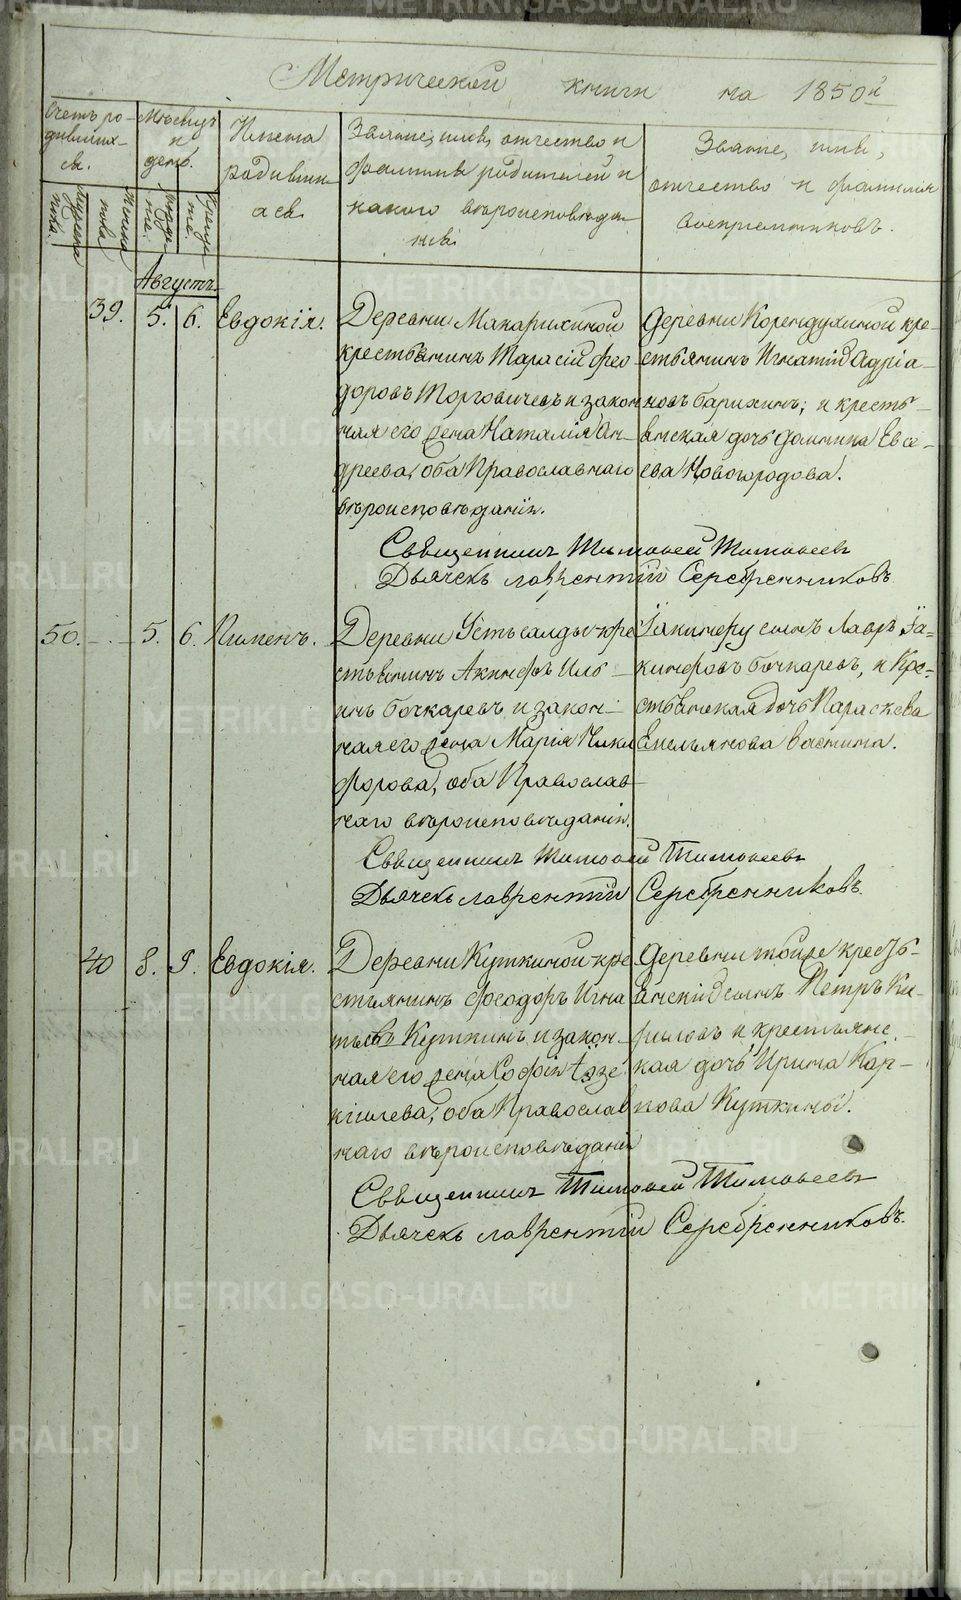 Метрической книги на 1850й
Счетъ ро-
дивших-
ся.
Мѣсяцъ
и
день.
Имена
родивших-
ся.
Званіе, имя, отчество и
фамилія родителей и
какого вѣроисповѣда-
нія.
Званіе, имя,
отчество и фамилія
воспріемниковъ.
Августъ.
39. 5. 6. Евдокія.
Деревни Макарихиной
крестьянинъ Тарасій Фео-
доровъ Торговичевъ и закон
ная его жена Наталія Ан-
дреева, оба Православнаго
вѣроисповѣданія.
Деревни Корендухиной кре-
стьянинъ Игнатій Адріа-
новъ Барихинъ; и кресть-
янская дочь Домнина Евсе-
ева Новогородова.
Священникъ Тимофей Тимофеевъ
Дьячекъ Лаврентій Серебренниковъ
50. 5. 6. Пименъ.
Деревни Устьсалды кре
стьянинъ Акинфъ Иль-
инъ Бочкаревъ и закон-
ная его жена Марія Ники
форова, оба Православ-
наго вѣроисповѣданія.
Іакинфу сынъ Лавръ Іа-
кинфовъ Бочкаревъ, и Кре-
стьянская дочь Параскева
Емельянова Васнина.
Священникъ Тимофей Тимофеевъ
Дьячекъ Лаврентій Серебренниковъ
40 8. 9. Евдокія.
Деревни Куткиной кре
стьянинъ Феодоръ Игна
тьевъ Куткинъ и закон-
ная его жена Софія Езе
кіилева, оба Православ
наго вѣроисповѣданія
Деревни тойже кресть-
янскій сынъ Петръ Ки-
риловъ и крестьянс
кая дочь Ирина Кар-
пова Куткины.
Священникъ Тимофей Тимофеевъ
Дьячекъ Лаврентій Серебренниковъ.
METRIKI.GASO-URAL.RU